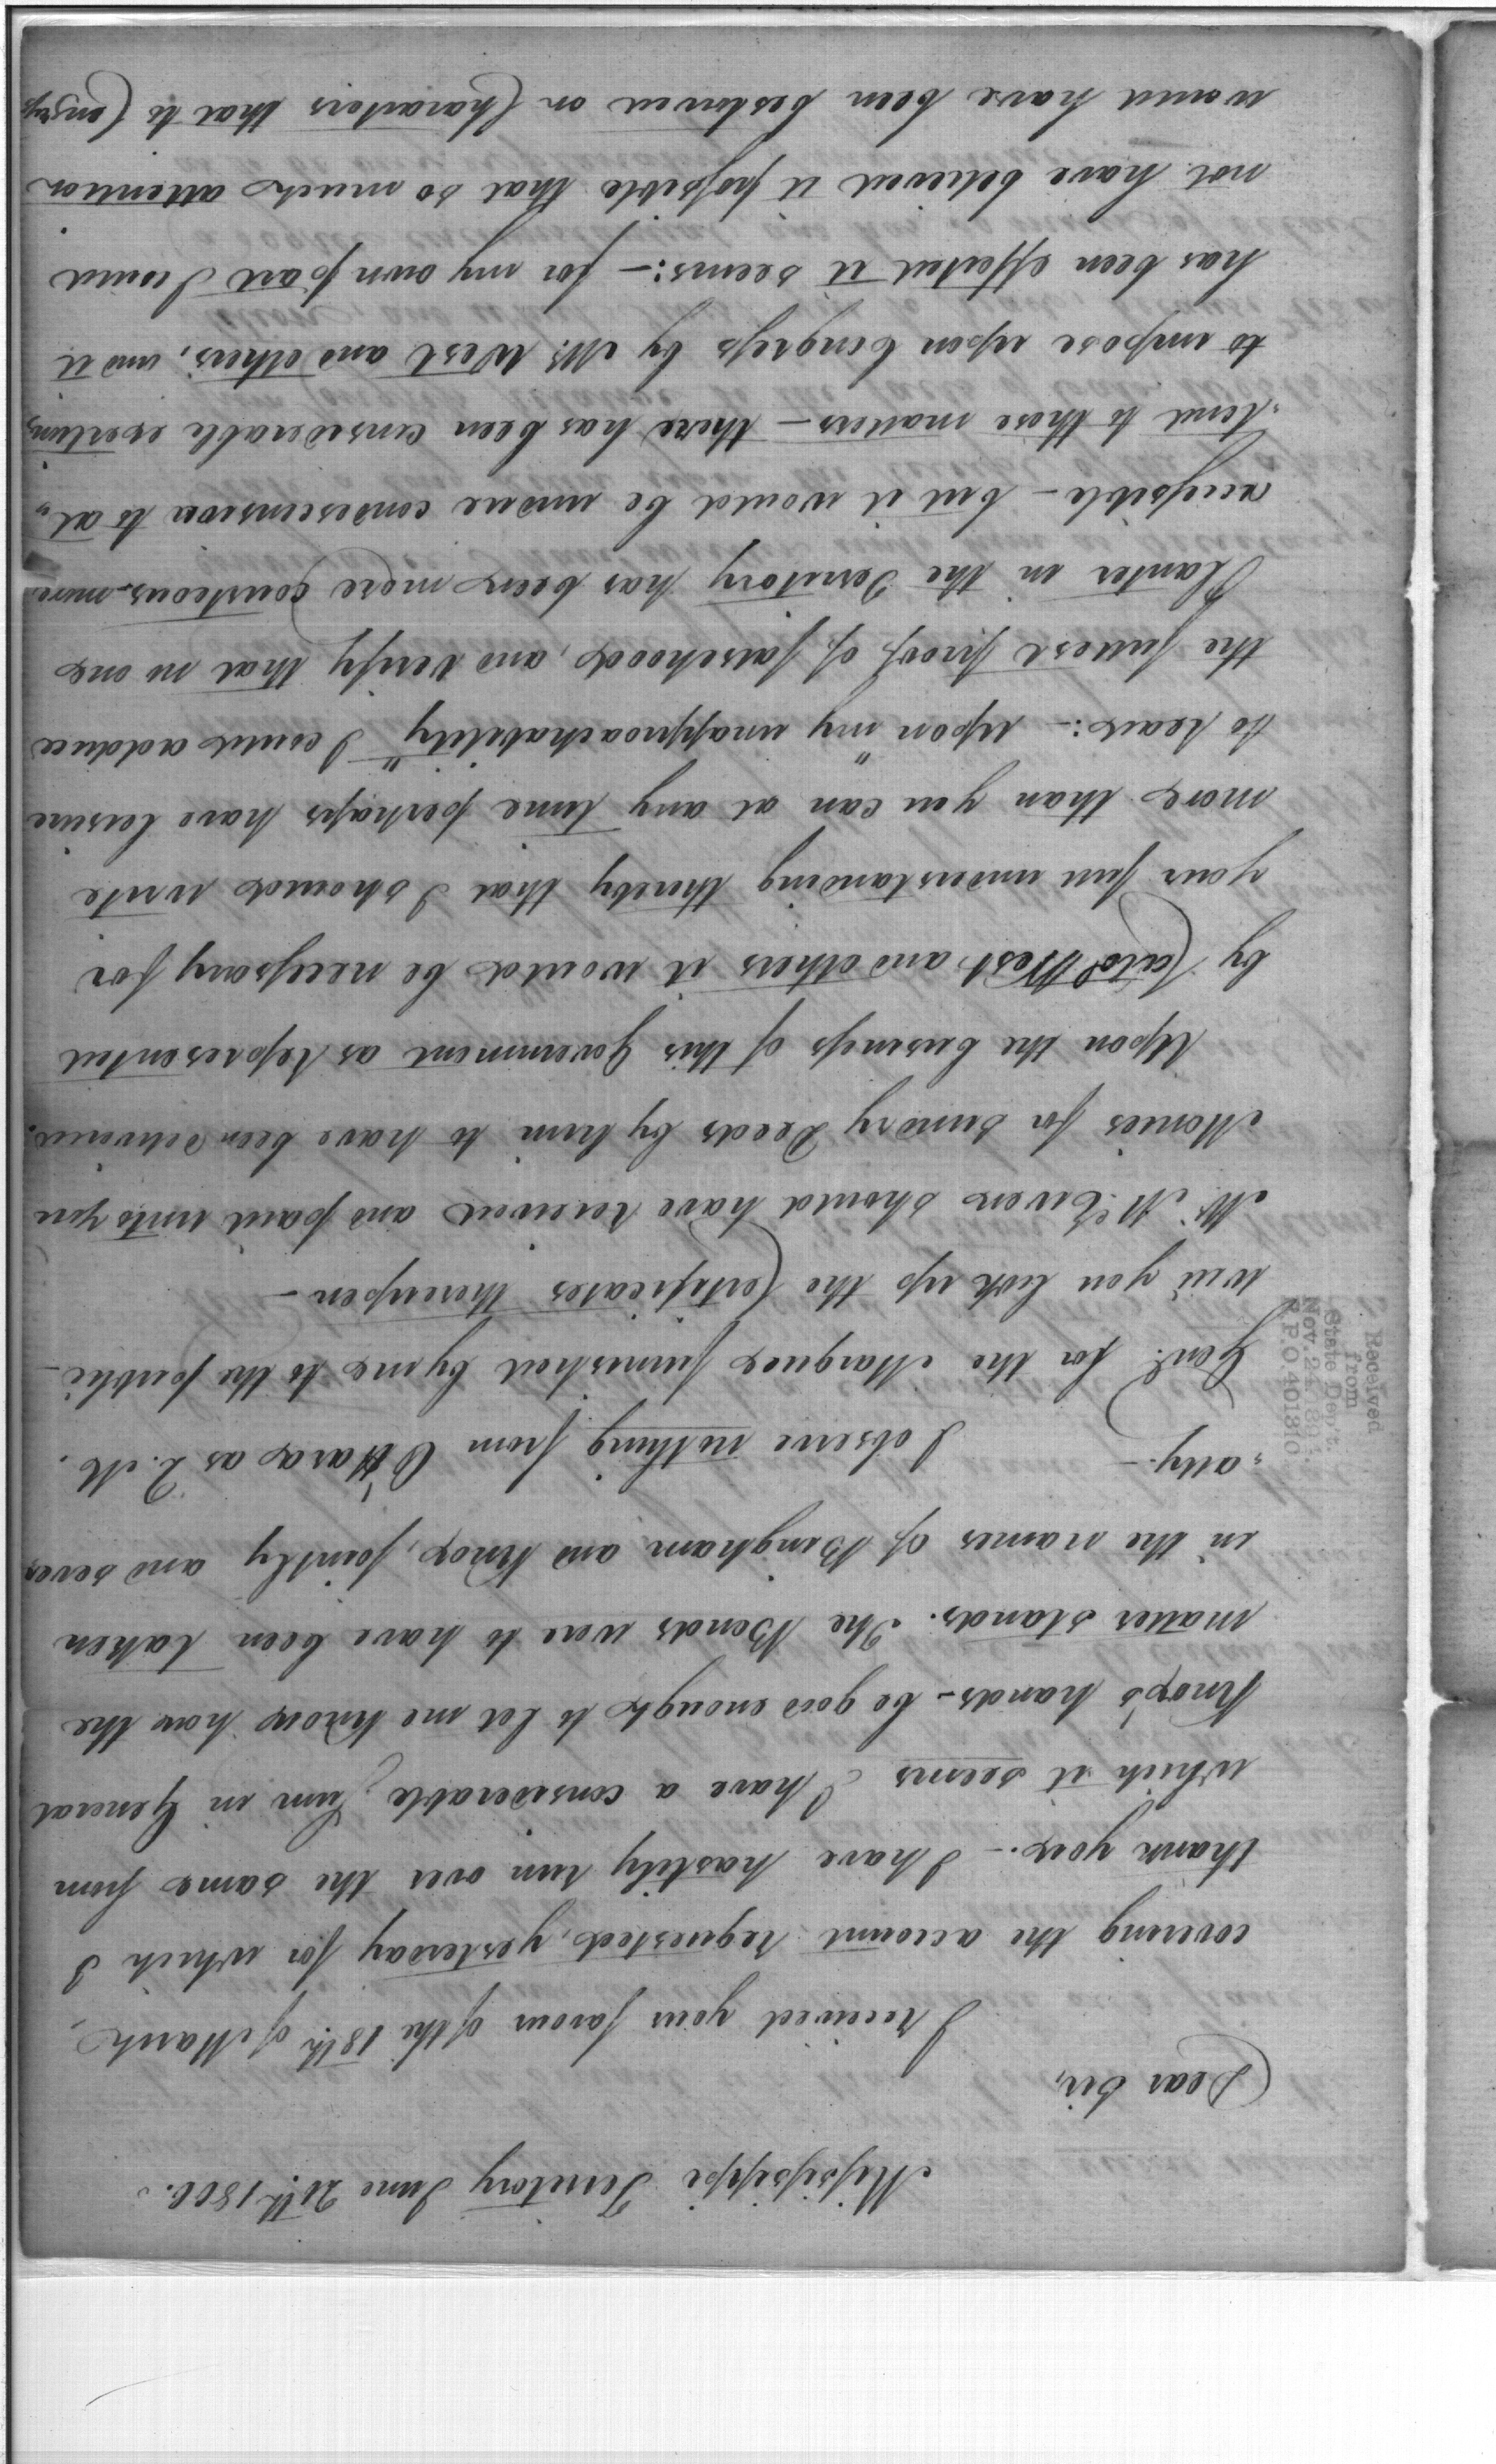 Missisippi Territory June 20th. 1800.
Dear Sir,
I received your favour of the 18th. of March,
covering the account requested, yesterday for which I
thank you. — I have hastily run over the same from
which it seems I have a considerable Sum in General
Knox's hands — be good enough to let me know how the
matter stands. The Bonds were to have been taken
in the names of Bingham and Knox, jointly and sever
"ally. — I observe nothing from O'Hara as Q. M.
Genl. for the Marquee furnished by me to the public —
will you look up the Certificates thereupon —
Mr. McEwen should have received and paid unto you
Monies for sundry Deeds by him to have been delivered.
Upon the business of this Government as represented
by Cato West and others it would be necessary for
your full understanding thereby that I should write
more than you can at any time perhaps have leisure
to read: — Upon my "unapproachability" I could adduce
the fullest proof of falsehood, and verify that no one
Planter in the Territory has been more courteous — more
accessible — but it would be undue condescension to at"
"tend to those matters — there has been considerable exertions
to impose upon Congress by Mr. West and others, and it
has been effected it seems: — for my own part I could
not have believed it possible that so much attention
would have been bestowed on Characters that to Congress
Received
from
State Dep't.
R.F.O. 401810